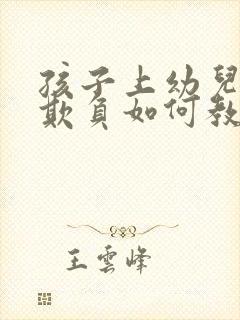 孩子上幼兒
欺負如何教
王雲峰